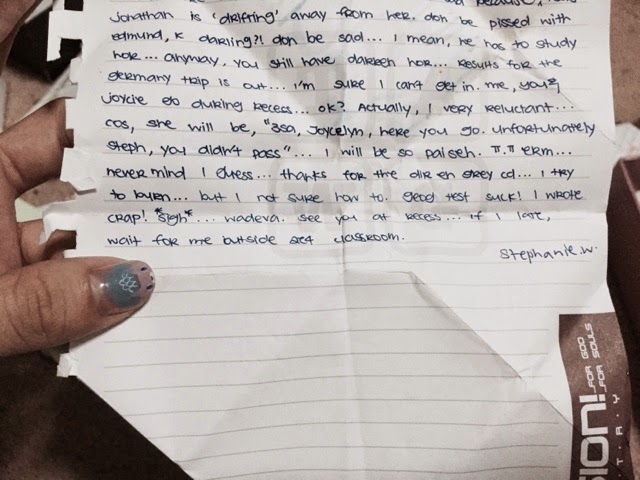 Jonathan is 'drifting' away from her. don be pissed with
edmund, k darling?! don be sad... I mean, he has to study
hor... anyway. you still have darren hor... results for the
germany trip is out... I'm sure I can't get in. me, you &
joycie go during recess... ok? Actually, I very reluctant...
cos, she will be, "Bsa, Joycelyn, here you go. unfortunately
steph, you didn't pass"... I will be so paiseh. π.π erm...
never mind I guess... thanks for the dir en grey cd... I try
to burn... but I not sure how to. geog test suck! I wrote
crap! *sigh*... wadeva. see you at recess... if I late,
wait for me outside 2e4 classroom.
Stephanie.w.
SION!
.FOR GOD
.FOR SOULS
T R Y